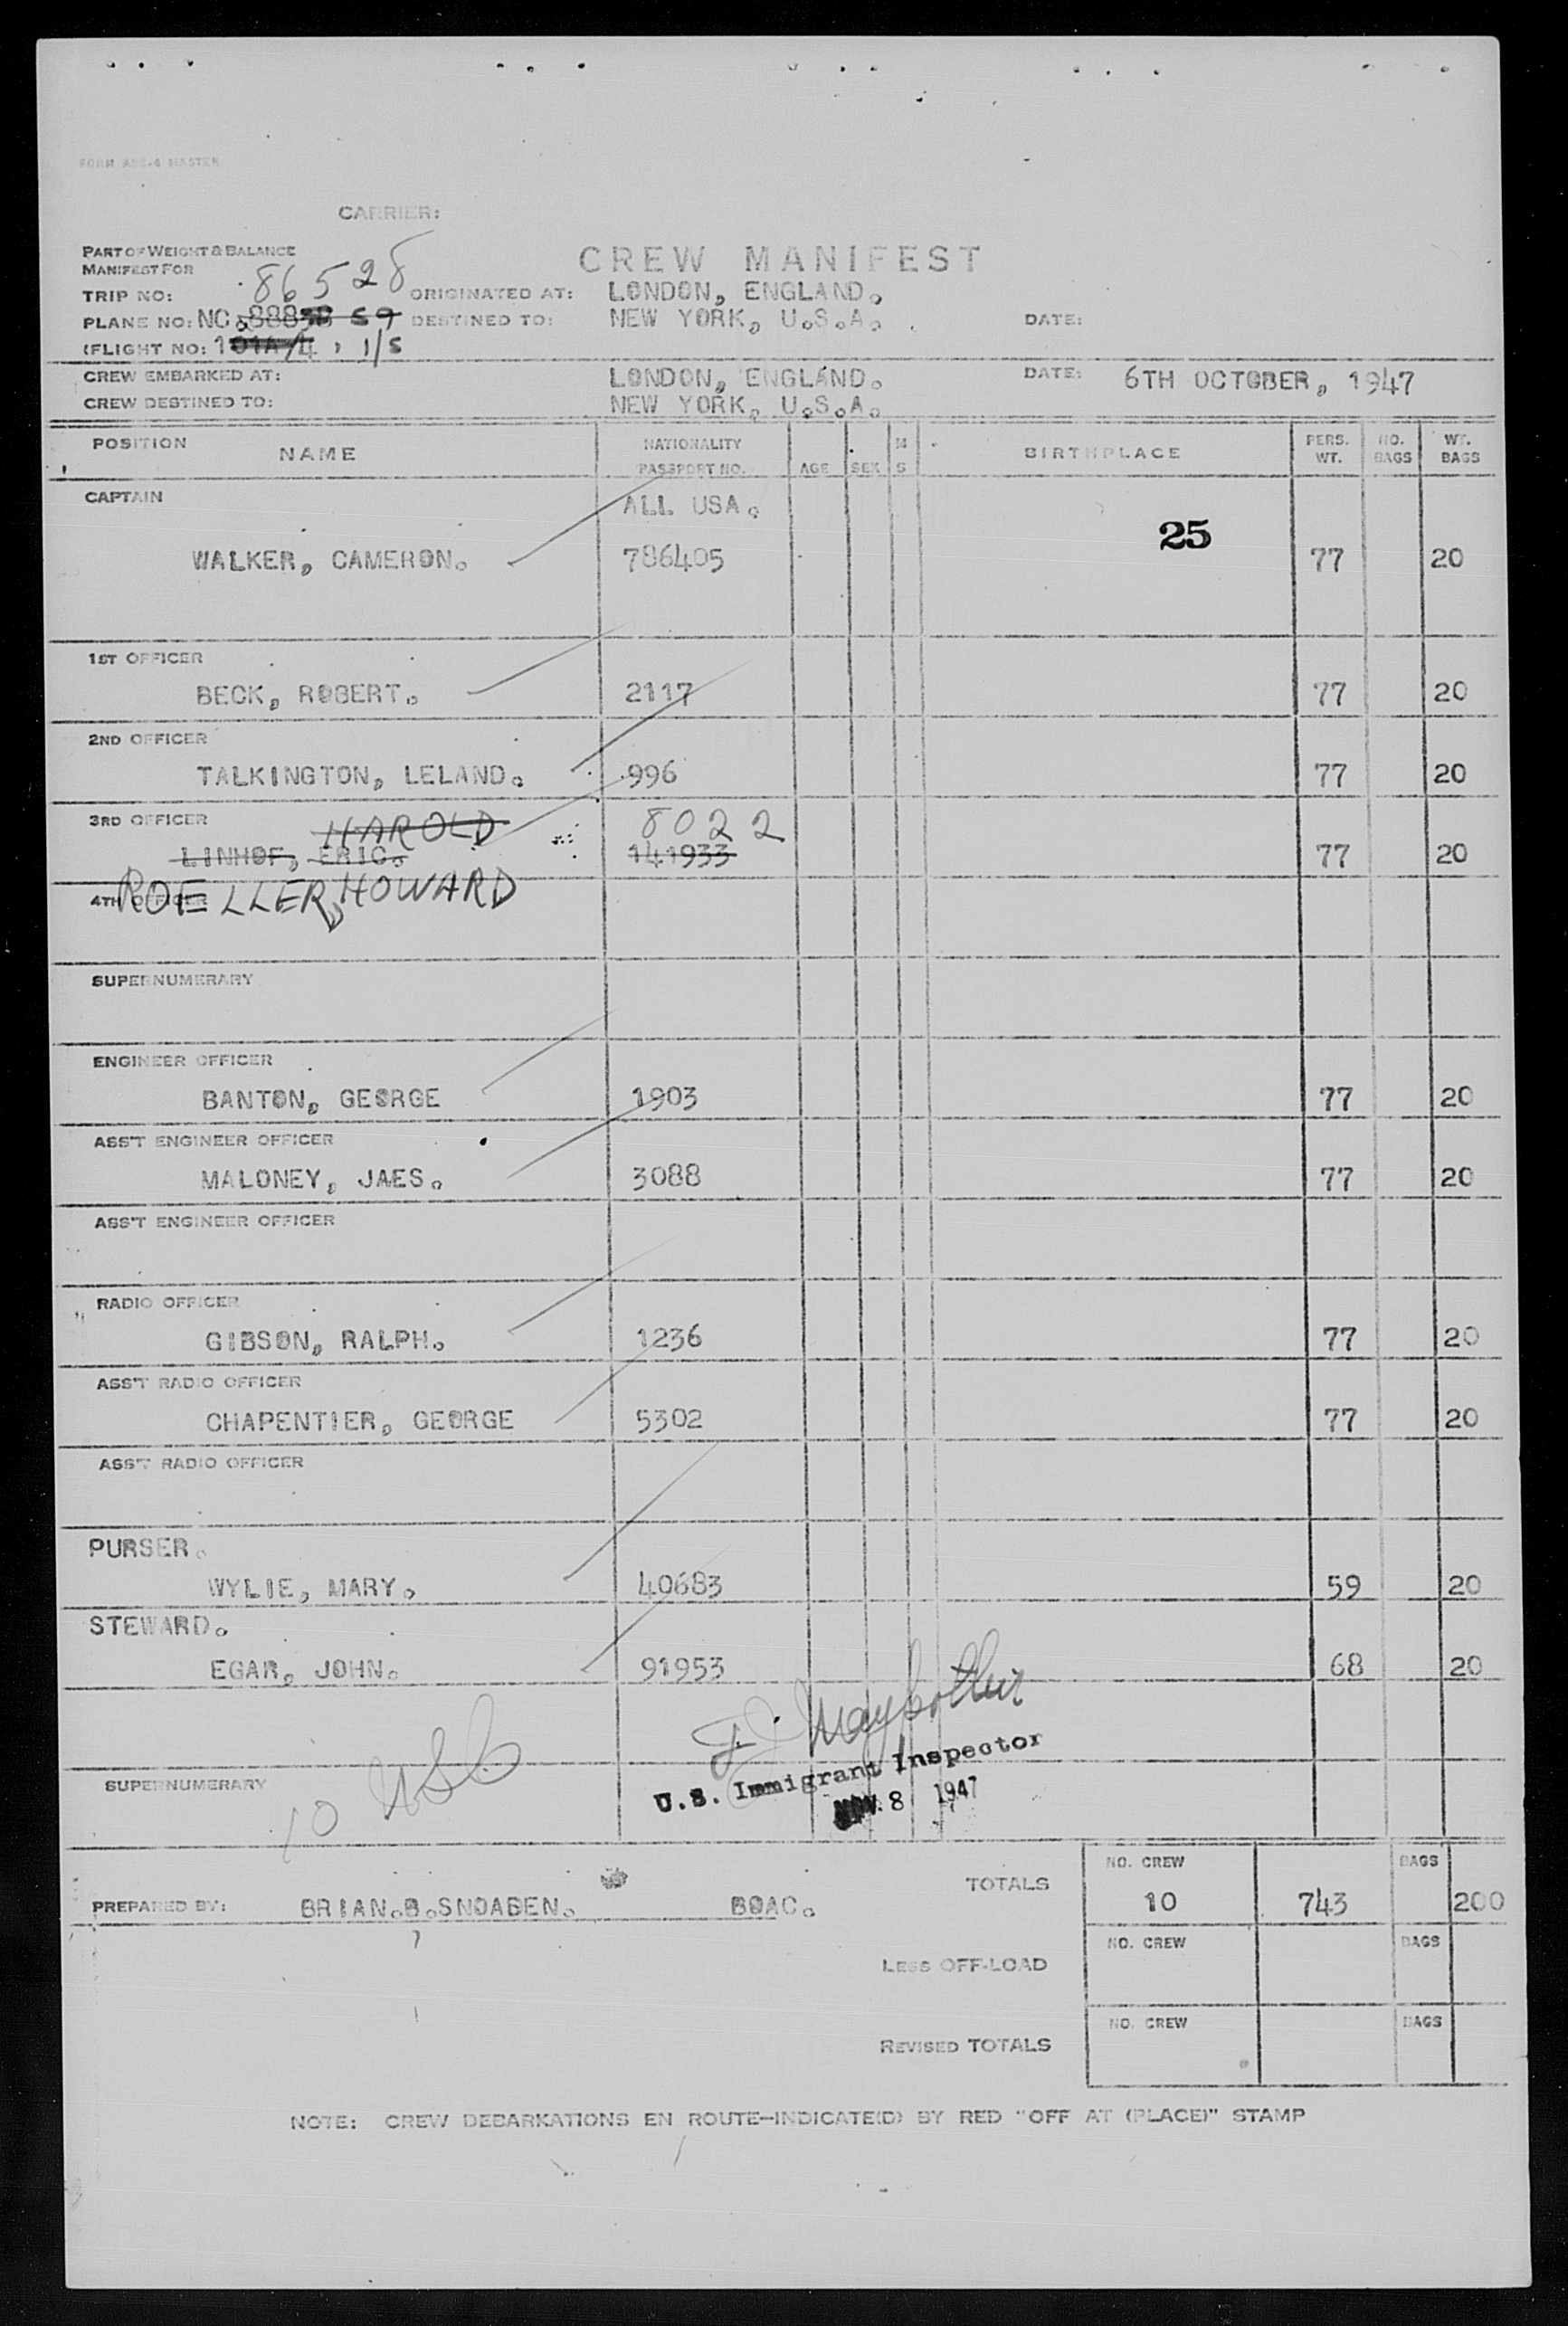 CARRIER:
PART OF WEIGHT & BALANCE
MANIFEST FOR
CREW MANIFEST
TRIP NO: 86528 ORIGINATED AT: LONDON, ENGLAND.
PLANE NO: NC 888 59 DESTINED TO: NEW YORK, U.S.A. DATE:
(FLIGHT NO: 1 1/5
CREW EMBARKED AT: LONDON, ENGLAND. DATE: 6TH OCTOBER, 1947
CREW DESTINED TO: NEW YORK, U.S.A.
POSITION NAME NATIONALITY PASSPORT NO. AGE SEX M S BIRTHPLACE PERS. WT. NO. BAGS WT. BAGS
CAPTAIN ALL USA.
25
WALKER, CAMERON. 786405 77 20
1ST OFFICER
BECK, ROBERT. 2117 77 20
2ND OFFICER
TALKINGTON, LELAND. 996 77 20
3RD OFFICER HAROLD 8022
LINHOF, ERIC. 141933 77 20
4TH OFFICER ROELLER, HOWARD
SUPERNUMERARY
ENGINEER OFFICER
BANTON, GEORGE 1903 77 20
ASS'T ENGINEER OFFICER
MALONEY, JAES. 3088 77 20
ASS'T ENGINEER OFFICER
RADIO OFFICER
GIBSON, RALPH. 1236 77 20
ASS'T RADIO OFFICER
CHAPENTIER, GEORGE 5302 77 20
ASS'T RADIO OFFICER
PURSER.
WYLIE, MARY. 40683 59 20
STEWARD.
EGAR, JOHN. 91953 68 20
U.S. Immigrant Inspector
SUPERNUMERARY
10 USC
NOV. 8 1947
TOTALS NO. CREW BAGS
PREPARED BY: BRIAN.B.SNOADEN. BOAC. 10 743 200
LESS OFF-LOAD NO. CREW BAGS
REVISED TOTALS NO. CREW BAGS
NOTE: CREW DEBARKATIONS EN ROUTE—INDICATE(D) BY RED "OFF AT (PLACE)" STAMP